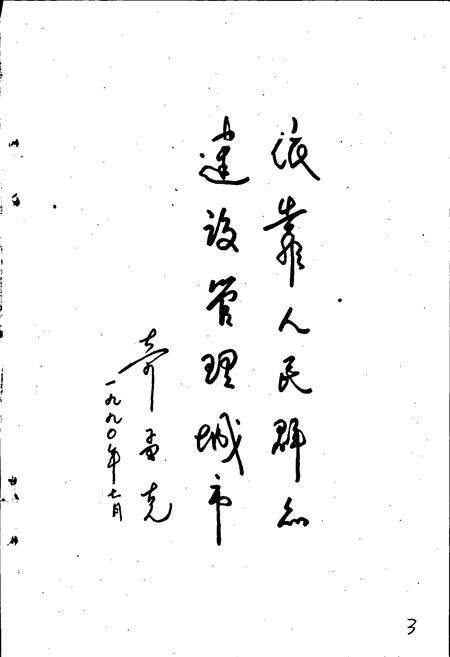 依靠人民群众
建设管理城市
孟克
一九九〇年七月
3